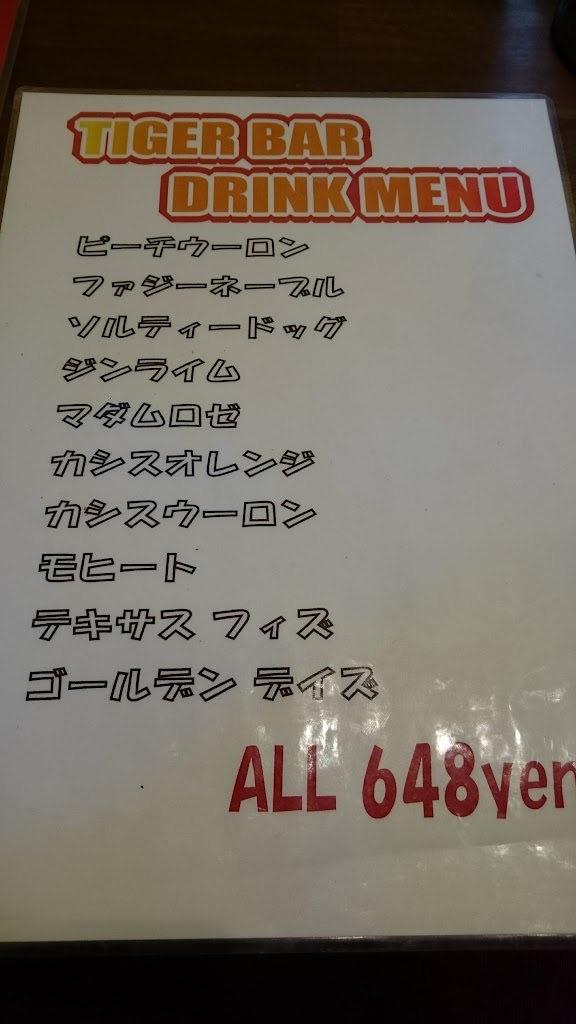 TIGER BAR
DRINK MENU
ピーチウーロン
ファジーネーブル
ソルティードッグ
ジンライム
マダムロゼ
カシスオレンジ
カシスウーロン
モヒート
テキサス フィズ
ゴールデン デイズ
ALL 648yen